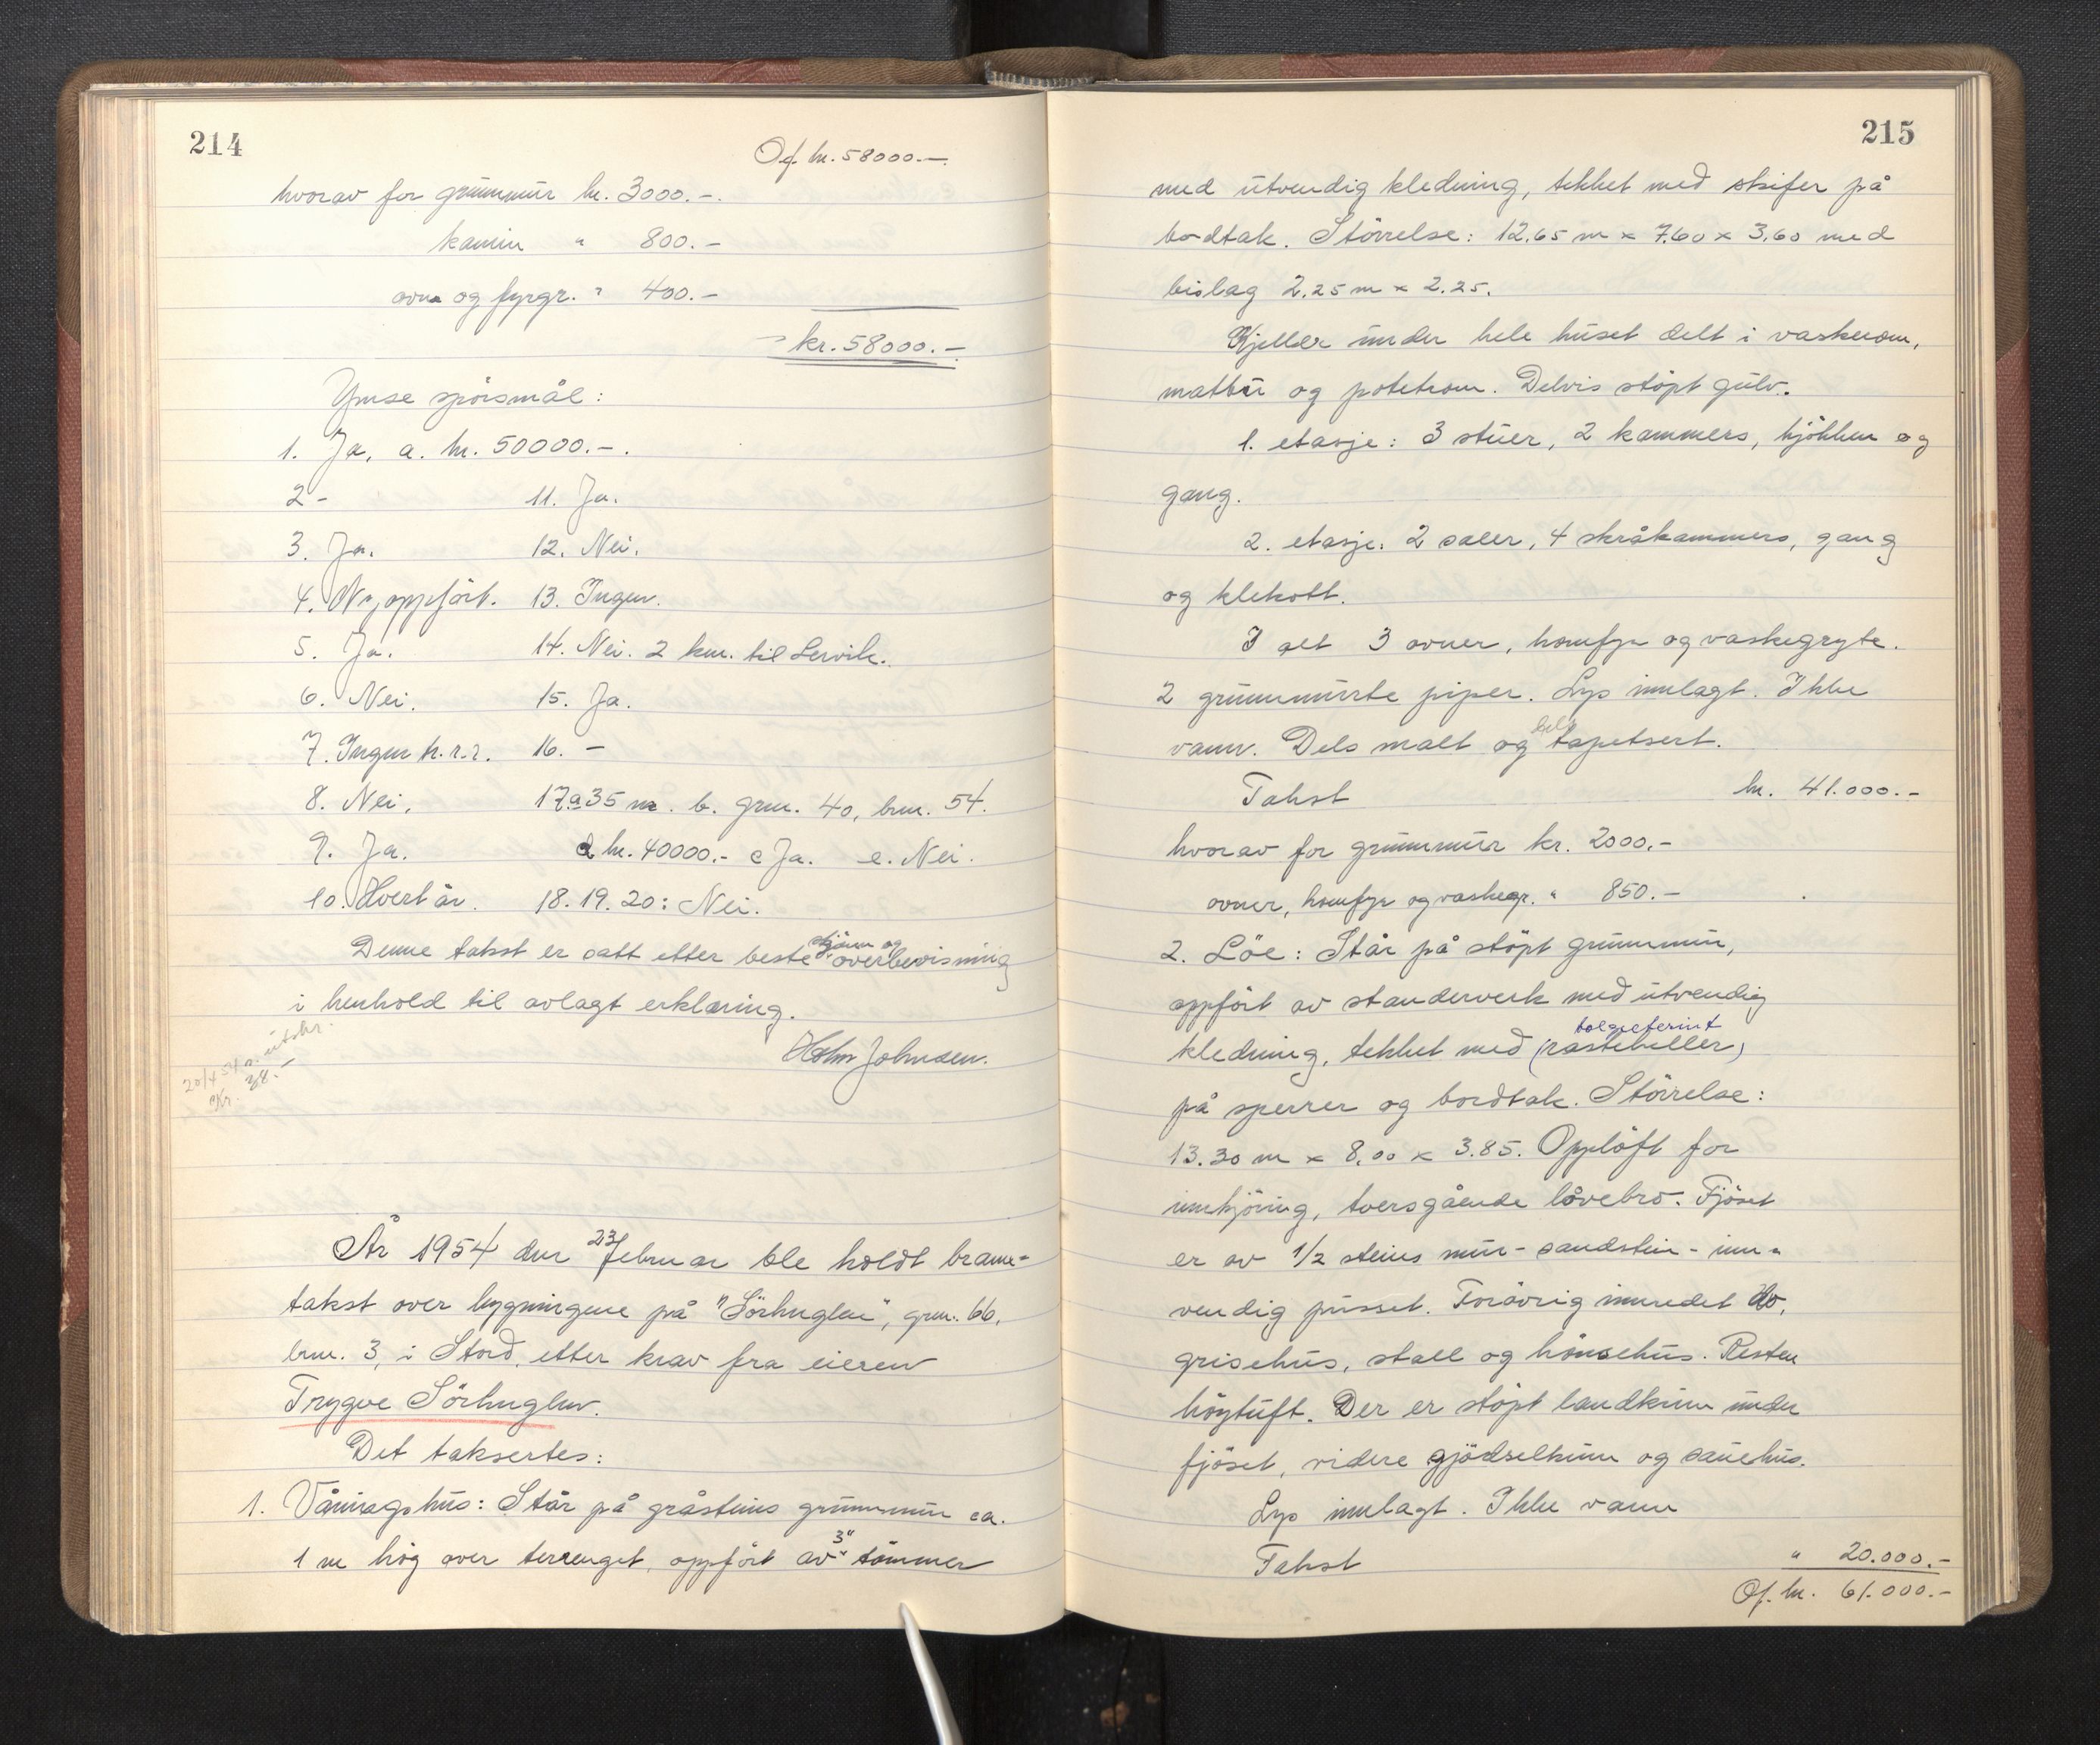 214
Of. kr. 58000.-
hvorav for grunnmur kr. 3000.-.
kamin " 800.-
ovn og fyrgr. " 400.-
kr. 58000.-
Ymse spörsmål:
1. Ja, a. kr. 50000.-.
2 - 11. Ja.
3. Ja. 12. Nei.
4. Ny oppfört. 13. Ingen.
5. Ja. 14. Nei. 2 km. til Lervik.
6. Nei. 15. Ja.
7. Ingen h.r.r. 16. -
8. Nei. 17. a 35 m. b. grn. 40, brn. 54.
9. Ja. d kr. 40000.- c Ja. e. Nei.
10. Hvert år. 18. 19. 20: Nei.
skjönn og
Denne takst er satt etter beste overbevisning
i henhold til avlagt erklæring.
Holm Johnsen.
20/4 54 s. utskr.
Kr. 38.-
År 1954 den 23 februar ble holdt brann-
takst over bygningene på "Sörhuglen", grn. 66,
brn. 3, i Stord, etter krav fra eieren
Trygve Sörhuglen.
Det taksertes:
1. Våningshus: Står på gråsteins grunnmur ca.
1 m hög over terrenget, oppfört av 3" tömmer
215
med utvendig kledning, tekket med skifer på
bordtak. Störrelse: 12,65 m x 7.60 x 3,60 med
bislag 2.25 m x 2.25.
Kjeller under hele huset delt i vaskerom,
matbu og potetrom. Delvis stöpt gulv.
1. etasje: 3 stuer, 2 kammers, kjökken og
gang.
2. etasje: 2 saler, 4 skråkammers, gang
og klekott.
I alt 3 ovner, komfyr og vaskegryte.
2 grunnmurte piper. Lys innlagt. Ikke
vann. Dels malt og dels tapetsert.
Takst kr. 41.000.-
hvorav for grunnmur kr. 2000.-
ovner, komfyr og vaskegr. " 850.-
2. Löe: Står på stöpt grunnmur,
oppfört av standerverk med utvendig
bølgeeternit
kledning, tekket med (rasteheller)
på sperrer og bordtak. Störrelse:
13.30 m x 8,00 x 3.85. Opplöft for
innkjöring, tversgående låvebro. Fjöset
er av 1/2 steins mur - sandstein - inn-
vendig pusset. Foråvrig innredet do,
grisehus, stall og hönsehus. Resten
höytuft. Der er stöpt landkum under
fjöset, videre gjödselkum og sauehus.
Lys innlagt. Ikke vann
Takst " 20.000.-
Of. kr. 61.000.-